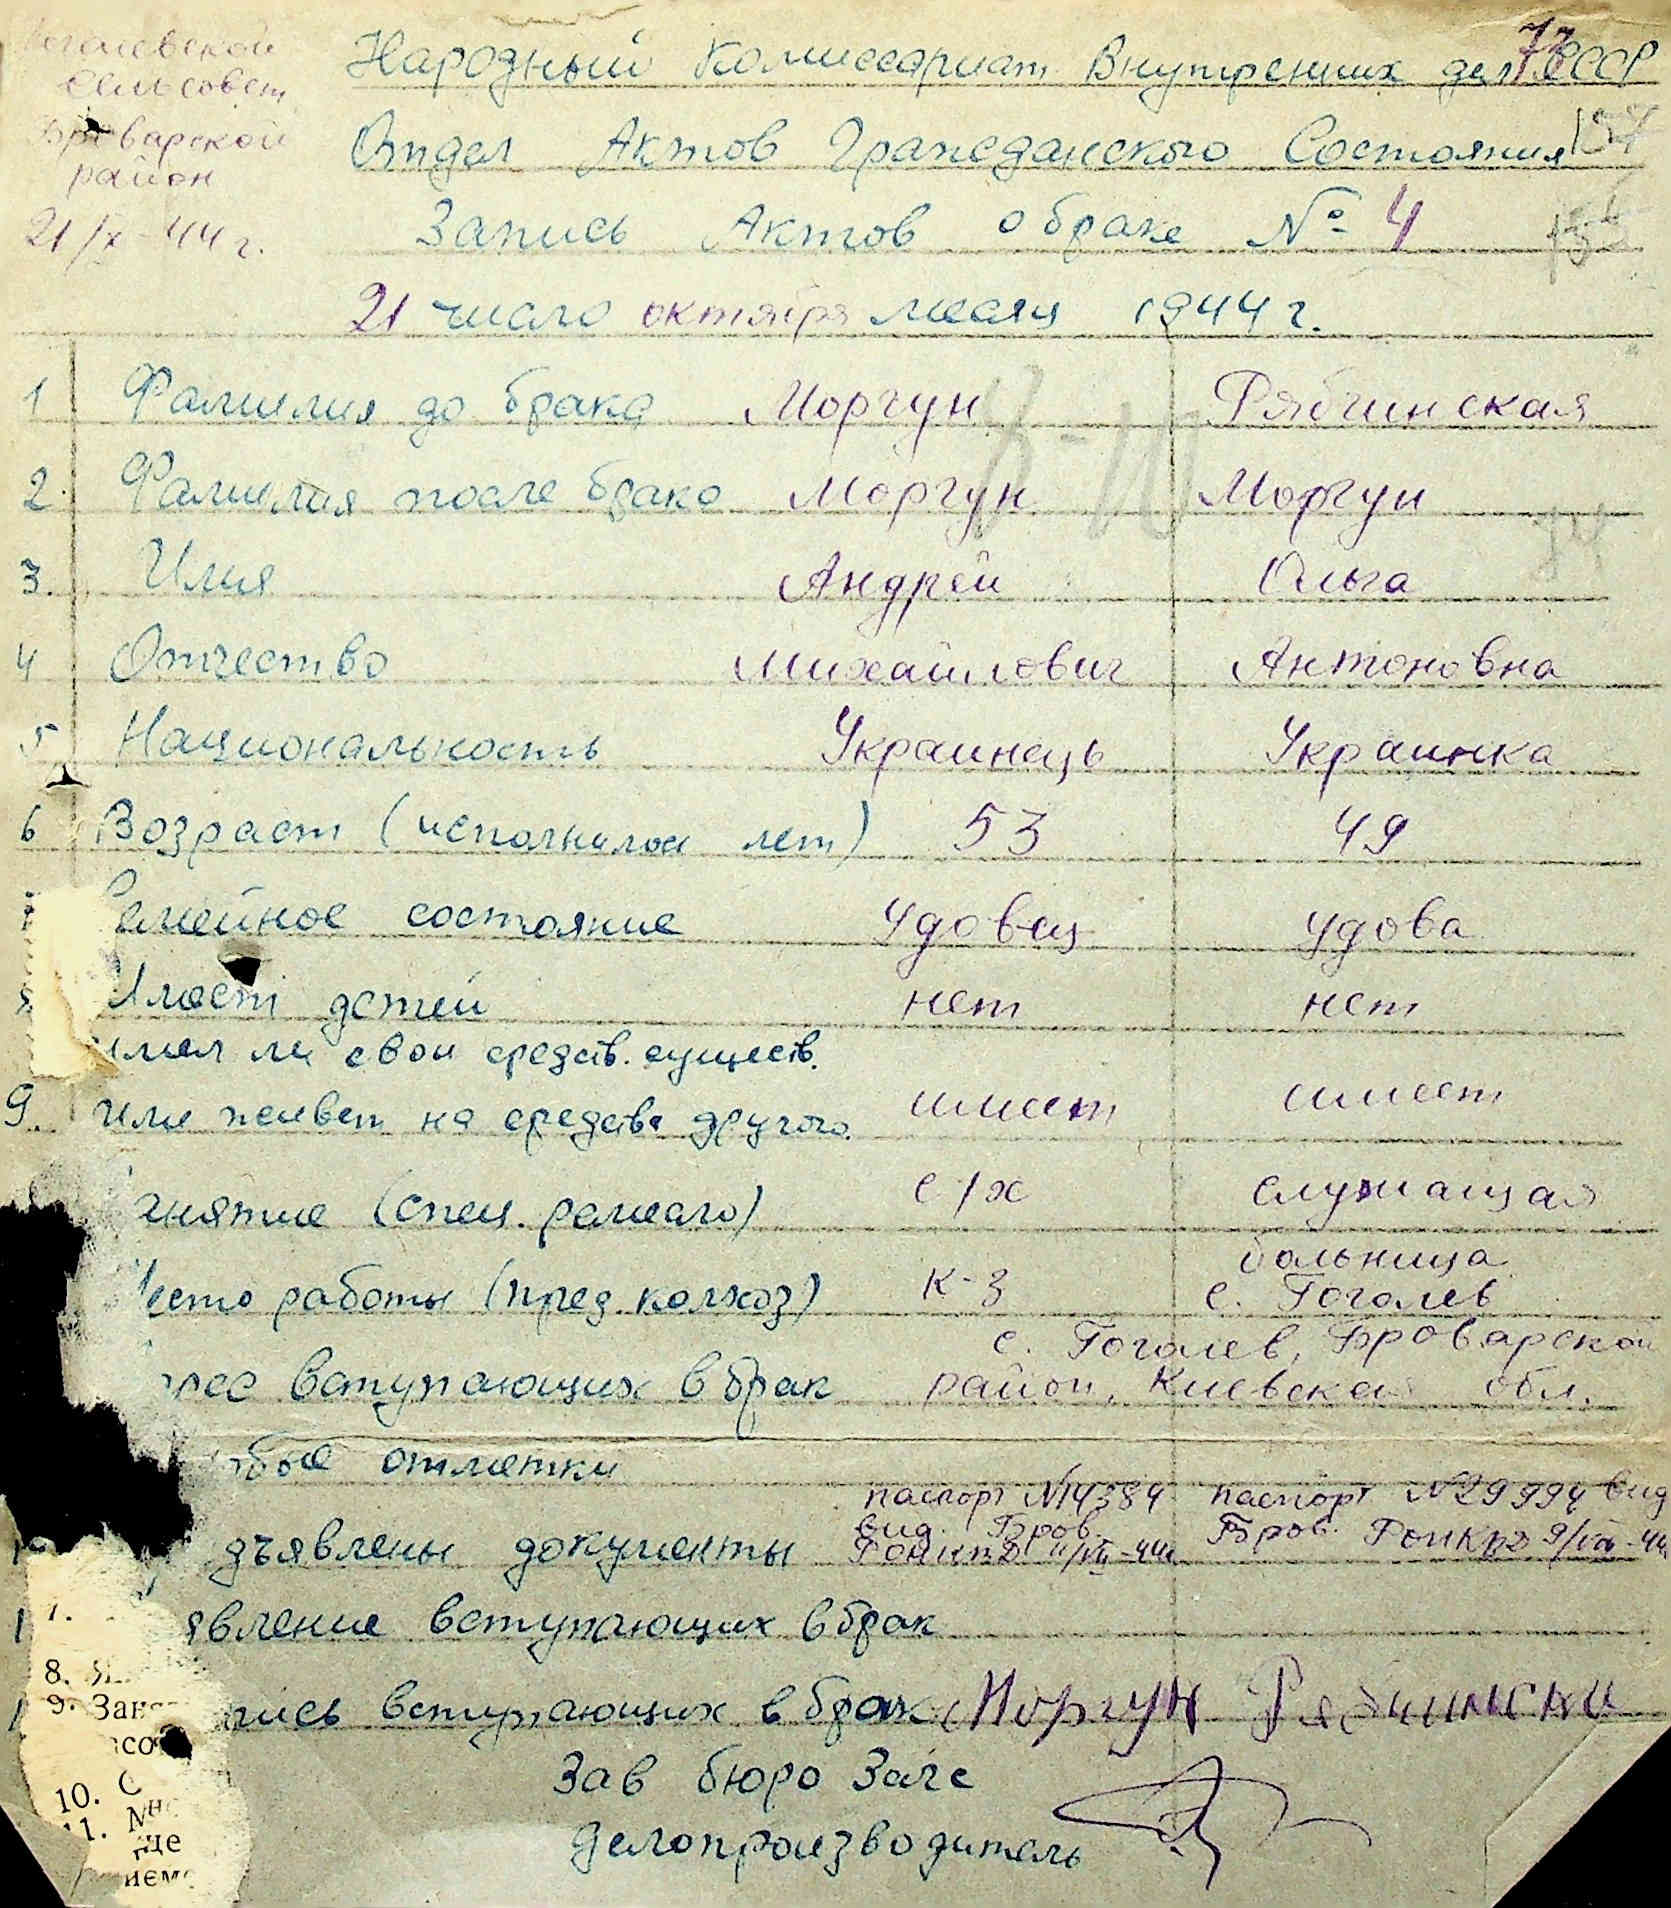 Гоголевской
Сельсовет
Броварской
район
21/X-44 г.
Народный Комиссариат Внутренних дел СССР
Отдел Актов Гражданского Состояния
Запись Актов о браке № 4
21 число октября месяц 1944 г.
1 Фамилия до брака Моргун Рябчинская
2. Фамилия после брака Моргун Моргун
3. Имя Андрей Ольга
4 Отчество Михайлович Антоновна
5 Национальность Украинець Украинка
6 Возраст (исполнилось лет) 53 49
Семейное состояние удовец удова
Имеет детей нет нет
имел ли свои средств. существ.
9. или живет на средства другого. имеет имеет
анятие (спец. ремесло) с/х служащая
место работы (пред. колхоз) к-з больница
с. Гоголев
с. Гоголев, Броварской
рес вступающих в брак район, Киевская обл.
обые отметки
паспорт №14384 паспорт №29994 вид
вид. Бров. Бров. РОНКВД 9/VIII-44
дъявлены документы РОНКВД 11/VIII-44
явление вступающих в брак
пись вступающих в брак Моргун Рябчински
Зав бюро Загс
делопроизводитель
8.
9. Зак
10. С
11.